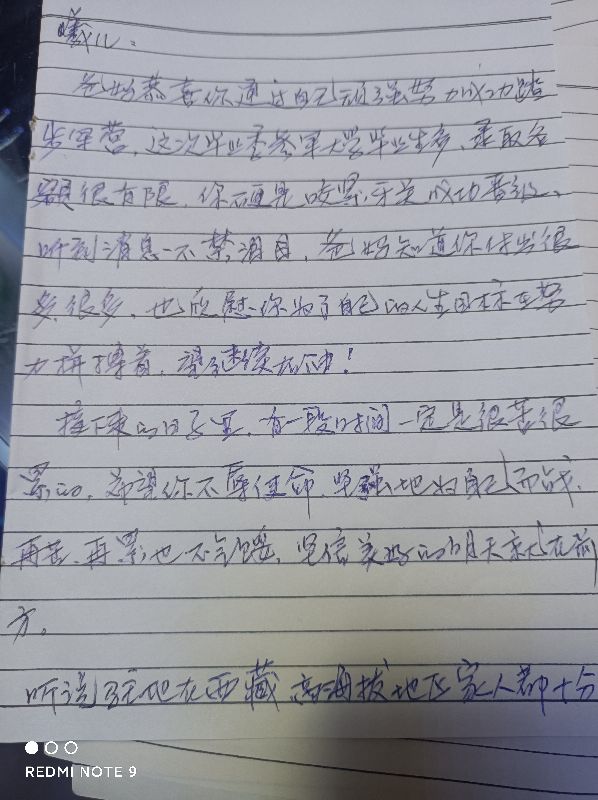 曦儿：
爸妈恭喜你通过自己顽强努力成功踏
步军营，这次毕业季参军大学毕业生多，录取名
额很有限，你硬是咬紧牙关成功晋级，
听到消息一不禁泪目，爸妈知道你付出很
多很多，也欣慰你为了自己的人生目标在努
力拼搏着，望继续加油！
接下来的日子里，有一段时间一定是很苦很
累的，希望你不辱使命，坚强地为自己而战，
再苦、再累也不会退，坚信美好的明天就在前
方。
听说驻地在西藏高海拔地区家人都十分
REDMI NOTE 9